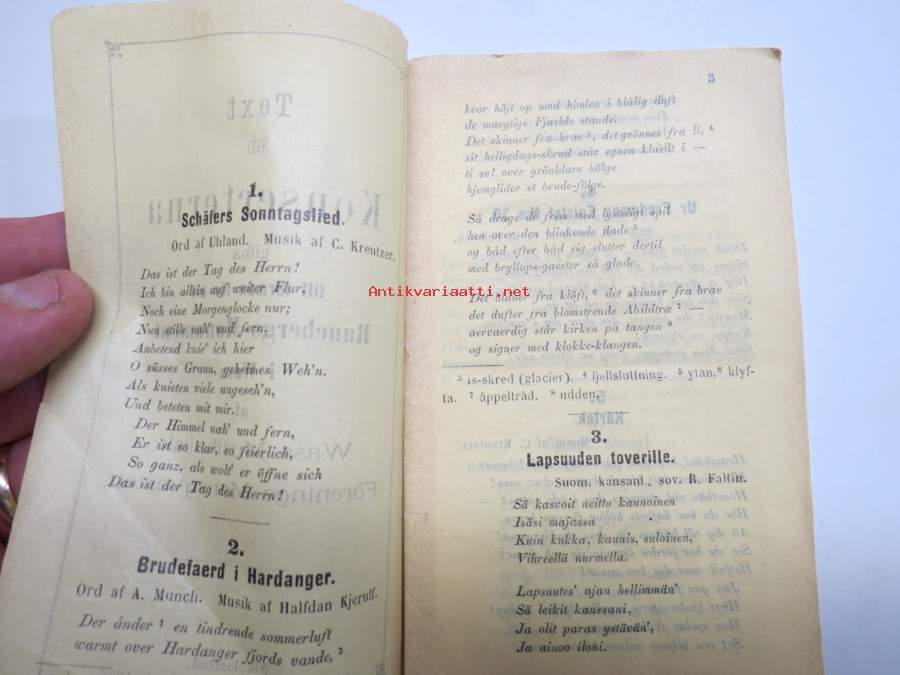 1.
Schäfers Sonntagslied.
Ord af Uhland. Musik af C. Kreutzer.
Das ist der Tag des Herrn!
Ich bin allein auf weiter Flur,
Noch eine Morgenglocke nur;
Nun stille nah' und fern.
Anbetend knie' ich hier
O süsses Graun, geheimes Weh'n.
Als knieten viele ungeseh'n,
Und beteten mit mir.
Der Himmel nah' und fern,
Er ist so klar, so feierlich,
So ganz, als wolt' er öffne sich
Das ist der Tag des Herrn!
2.
Brudefaerd i Hardanger.
Ord af A. Munch. Musik af Halfdan Kjerulf.
Der ånder ¹ en tindrende sommerluft
warmt over Hardanger fjords vande, ²
3
hvor höjt op mod himlen i blålig duft
de maegtige Fjaelde stande.
Det skinner fra brae ³, det grönnes fra li, ⁴
sit helligdags-skrud står egnen klaedt i —
ti se! over grönklare bölge
hjemglider et brude-fölge.
Så drage de frem med lysteligt spil
hen over den blinkende flade ⁵
og båd efter båd sig slutter dertil
med bryllups-gaester så glade.
Det blåner fra klöft, ⁶ det skinner fra brae
det dufter fra blomstrende Abildtrae ⁷ —
aervaerdig står kirken på tangen ⁸
og signer med klokke-klangen.
³ is-skred (glacier). ⁴ fjellsluttning. ⁵ ytan. ⁶ klyf-
ta. ⁷ äppelträd. ⁸ udden.
3.
Lapsuuden toverille.
Suom. kansanl., sov. R. Faltin.
Sä kasvoit neitto kaunoinen
Isäsi majassa
Kuin kukka, kaunis, suloinen,
Vihreellä nurmella.
Lapsuutes' ajan hellimmän'
Sä leikit kanssani,
Ja olit paras ystävän',
Ja ainoo iloni.
Antikvariaatti.net